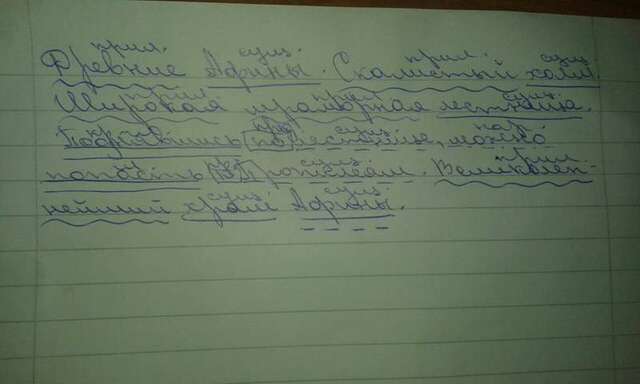 прил. сущ. прил. сущ.
Древние Афины. Скалистый холм.
прил. прил. сущ.
Широкая мраморная лестница.
сущ. нар.
Поднявшись по лестнице, можно
гл. сущ. прил.
попасть в Пропилеи. Великолеп-
сущ. сущ.
нейший храм Афины.